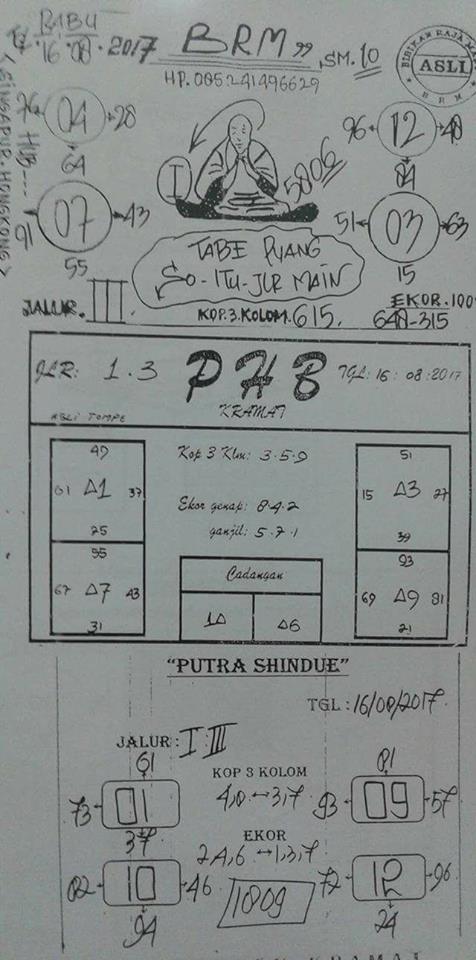 RABU
16.08.2017 BRM ,, SM.10
HP. 085241496629
BISIKAN RAJA
ASLI
BRM
< SINGAPUR. HONGKONG >
HUB---
04
76 28
64
07
91 43
55
I
5806
12
96 48
84
03
51 63
15
TABE PUANG
SO-ITU-JLR MAIN
JALUR. III
KOP.3.KOLOM.615.
EKOR.100%
648-315
JLR: 1.3 PHB TGL: 16: 08: 2017
KRAMAT
ASLI TOMPE
49
61 Δ1 37
25
55
67 Δ7 43
31
Kop 3 Klm: 3.5.9
Ekor genap: 8.4.2
ganjil: 5.7.1
Cadangan
1Δ Δ6
51
15 Δ3 27
39
93
69 Δ9 81
21
"PUTRA SHINDUE"
TGL: 16/08/2017
JALUR: I:III
61
73 01
37
KOP 3 KOLOM
4,0 ↔ 3,7
81
93 09 57
EKOR
2,4,6 ↔ 1,3,7
82 10 46
94
1809
72 12 96
24